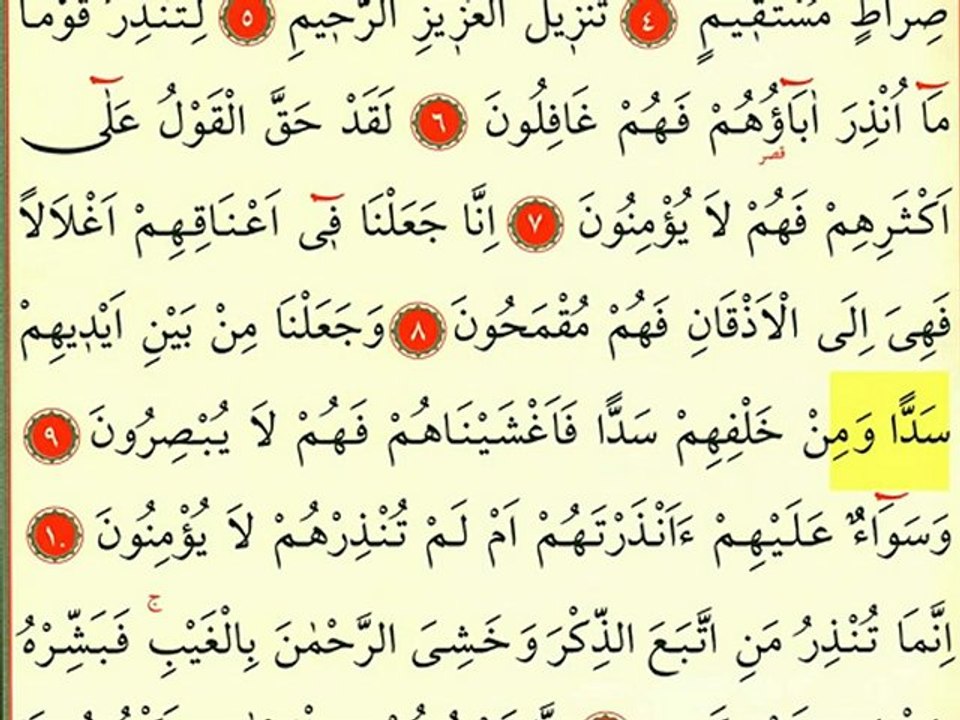 صِرَاطٍ مُسْتَقٖيمٍ ٤ تَنْزٖيلَ الْعَزٖيزِ الرَّحٖيمِ ٥ لِتُنْذِرَ قَوْمًا
مَٓا اُنْذِرَ اٰبَٓاؤُهُمْ فَهُمْ غَافِلُونَ ٦ لَقَدْ حَقَّ الْقَوْلُ عَلٰٓى
قصر
اَكْثَرِهِمْ فَهُمْ لَا يُؤْمِنُونَ ٧ اِنَّا جَعَلْنَا فٖٓى اَعْنَاقِهِمْ اَغْلَالًا
فَهِىَ اِلَى الْاَذْقَانِ فَهُمْ مُقْمَحُونَ ٨ وَجَعَلْنَا مِنْ بَيْنِ اَيْدٖيهِمْ
سَدًّا وَمِنْ خَلْفِهِمْ سَدًّا فَاَغْشَيْنَاهُمْ فَهُمْ لَا يُبْصِرُونَ ٩
وَسَوَٓاءٌ عَلَيْهِمْ ءَاَنْذَرْتَهُمْ اَمْ لَمْ تُنْذِرْهُمْ لَا يُؤْمِنُونَ ١٠
اِنَّمَا تُنْذِرُ مَنِ اتَّبَعَ الذِّكْرَ وَخَشِىَ الرَّحْمٰنَ بِالْغَيْبِۚ فَبَشِّرْهُ